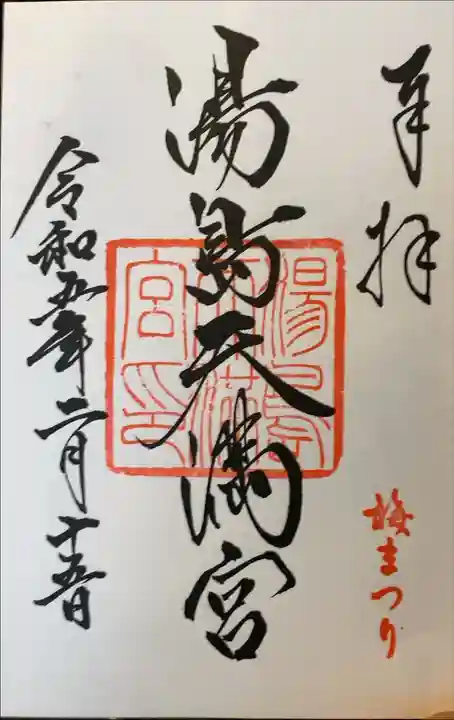 奉拝
梅まつり
湯島天満宮
湯島天満宮印
令和五年二月十五日